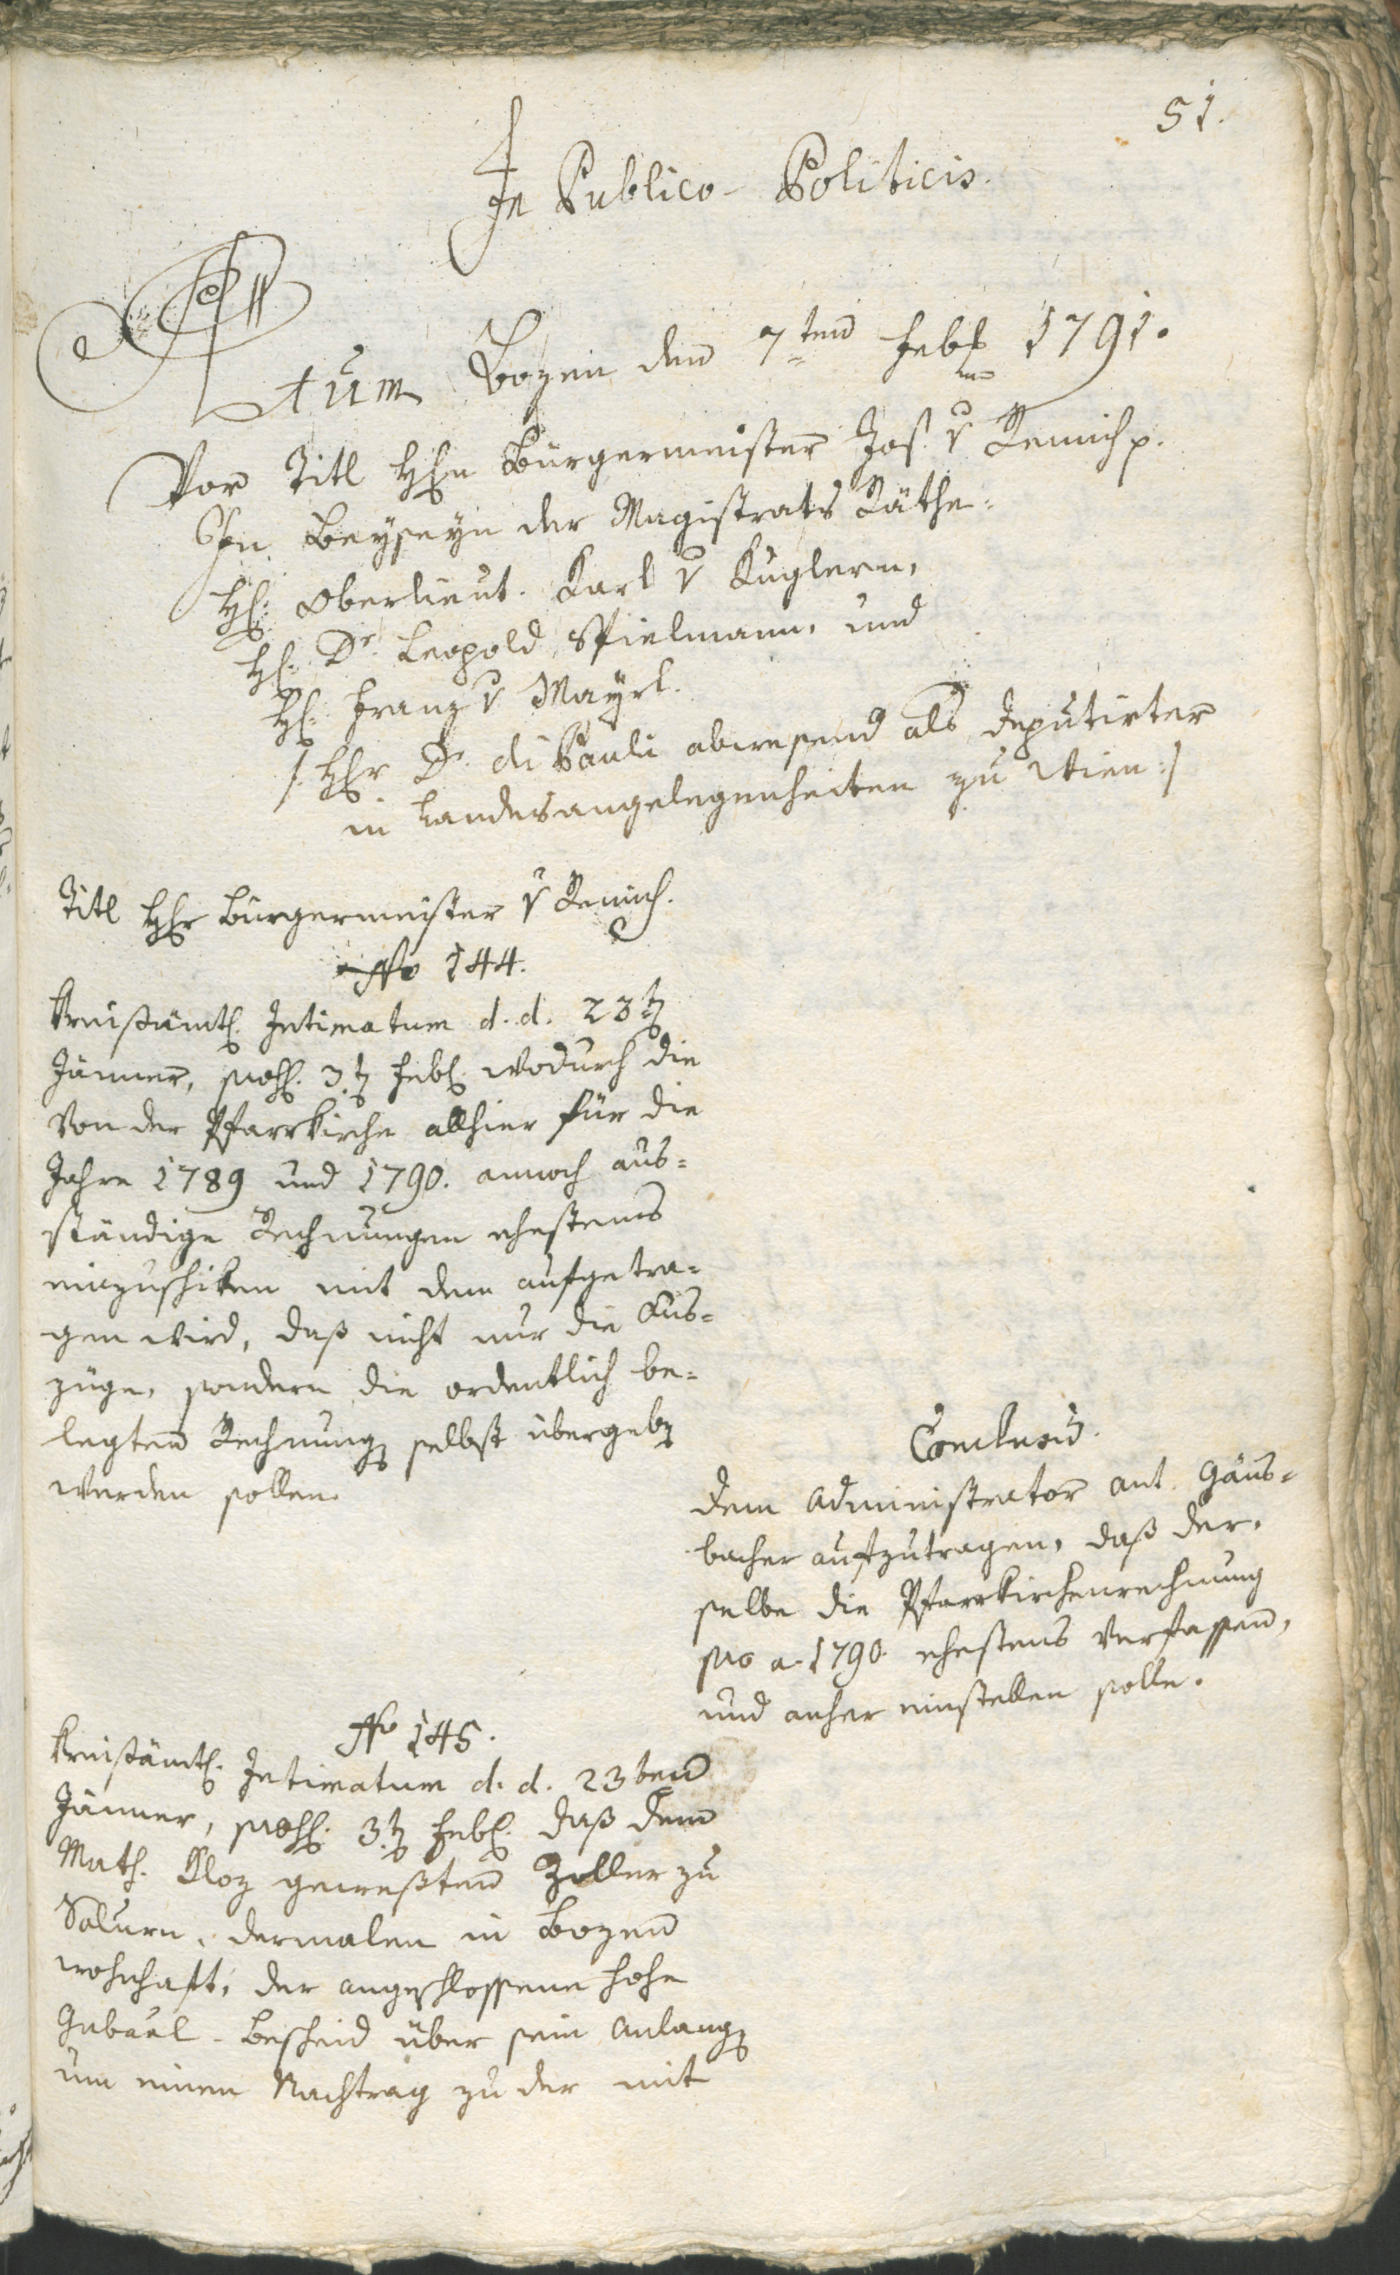 51.
In Publico-Politicis.
Actum Bozen den 7ten Febr 1791.
Vor Titl Hhn Bürgermeister Jos. v Remich p.
In Beyseyn der Magistrats Räthe:
H: Oberlieut. Karl v Kuglern,
H: Dr Leopold Spielmann, und
H: Franz v Mayrl.
/: Hhr Dr di Pauli abwesend als Deputirter
in Landesangelegenheiten zu Wien :/
Titl Hhr Bürgermeister v Remich.
No 144.
Kreisämtl. Intimatum d. d. 23t
Jänner, 3t Feb. wodurch die
von der Pfarrkirche allhier für die
Jahre 1789 und 1790. annoch aus-
ständige Rechnungen ehestens
einzuschiken mit dem aufgetra-
gen wird, daß nicht nur die Aus-
züge, sondern die ordentlich be-
legten Rechnung selbst übergeb
werden sollen.
Conclusū.
Dem Administrator Ant. Gäns-
bacher aufzutragen, daß der-
selbe die Pfarrkirchenrechnung
pro a. 1790 ehestens verfassen,
und anher einstellen solle.
No 145.
Kreisämtl. Intimatum d. d. 23ten
Jänner, 3t Feb. daß dem
Math. Kloz gewesten Zoller zu
Salurn, dermalen in Bozen
wohnhaft, der angeschlossene hohe
Gubaal-Bescheid über sein Anlang
um einen Nachtrag zu der mit